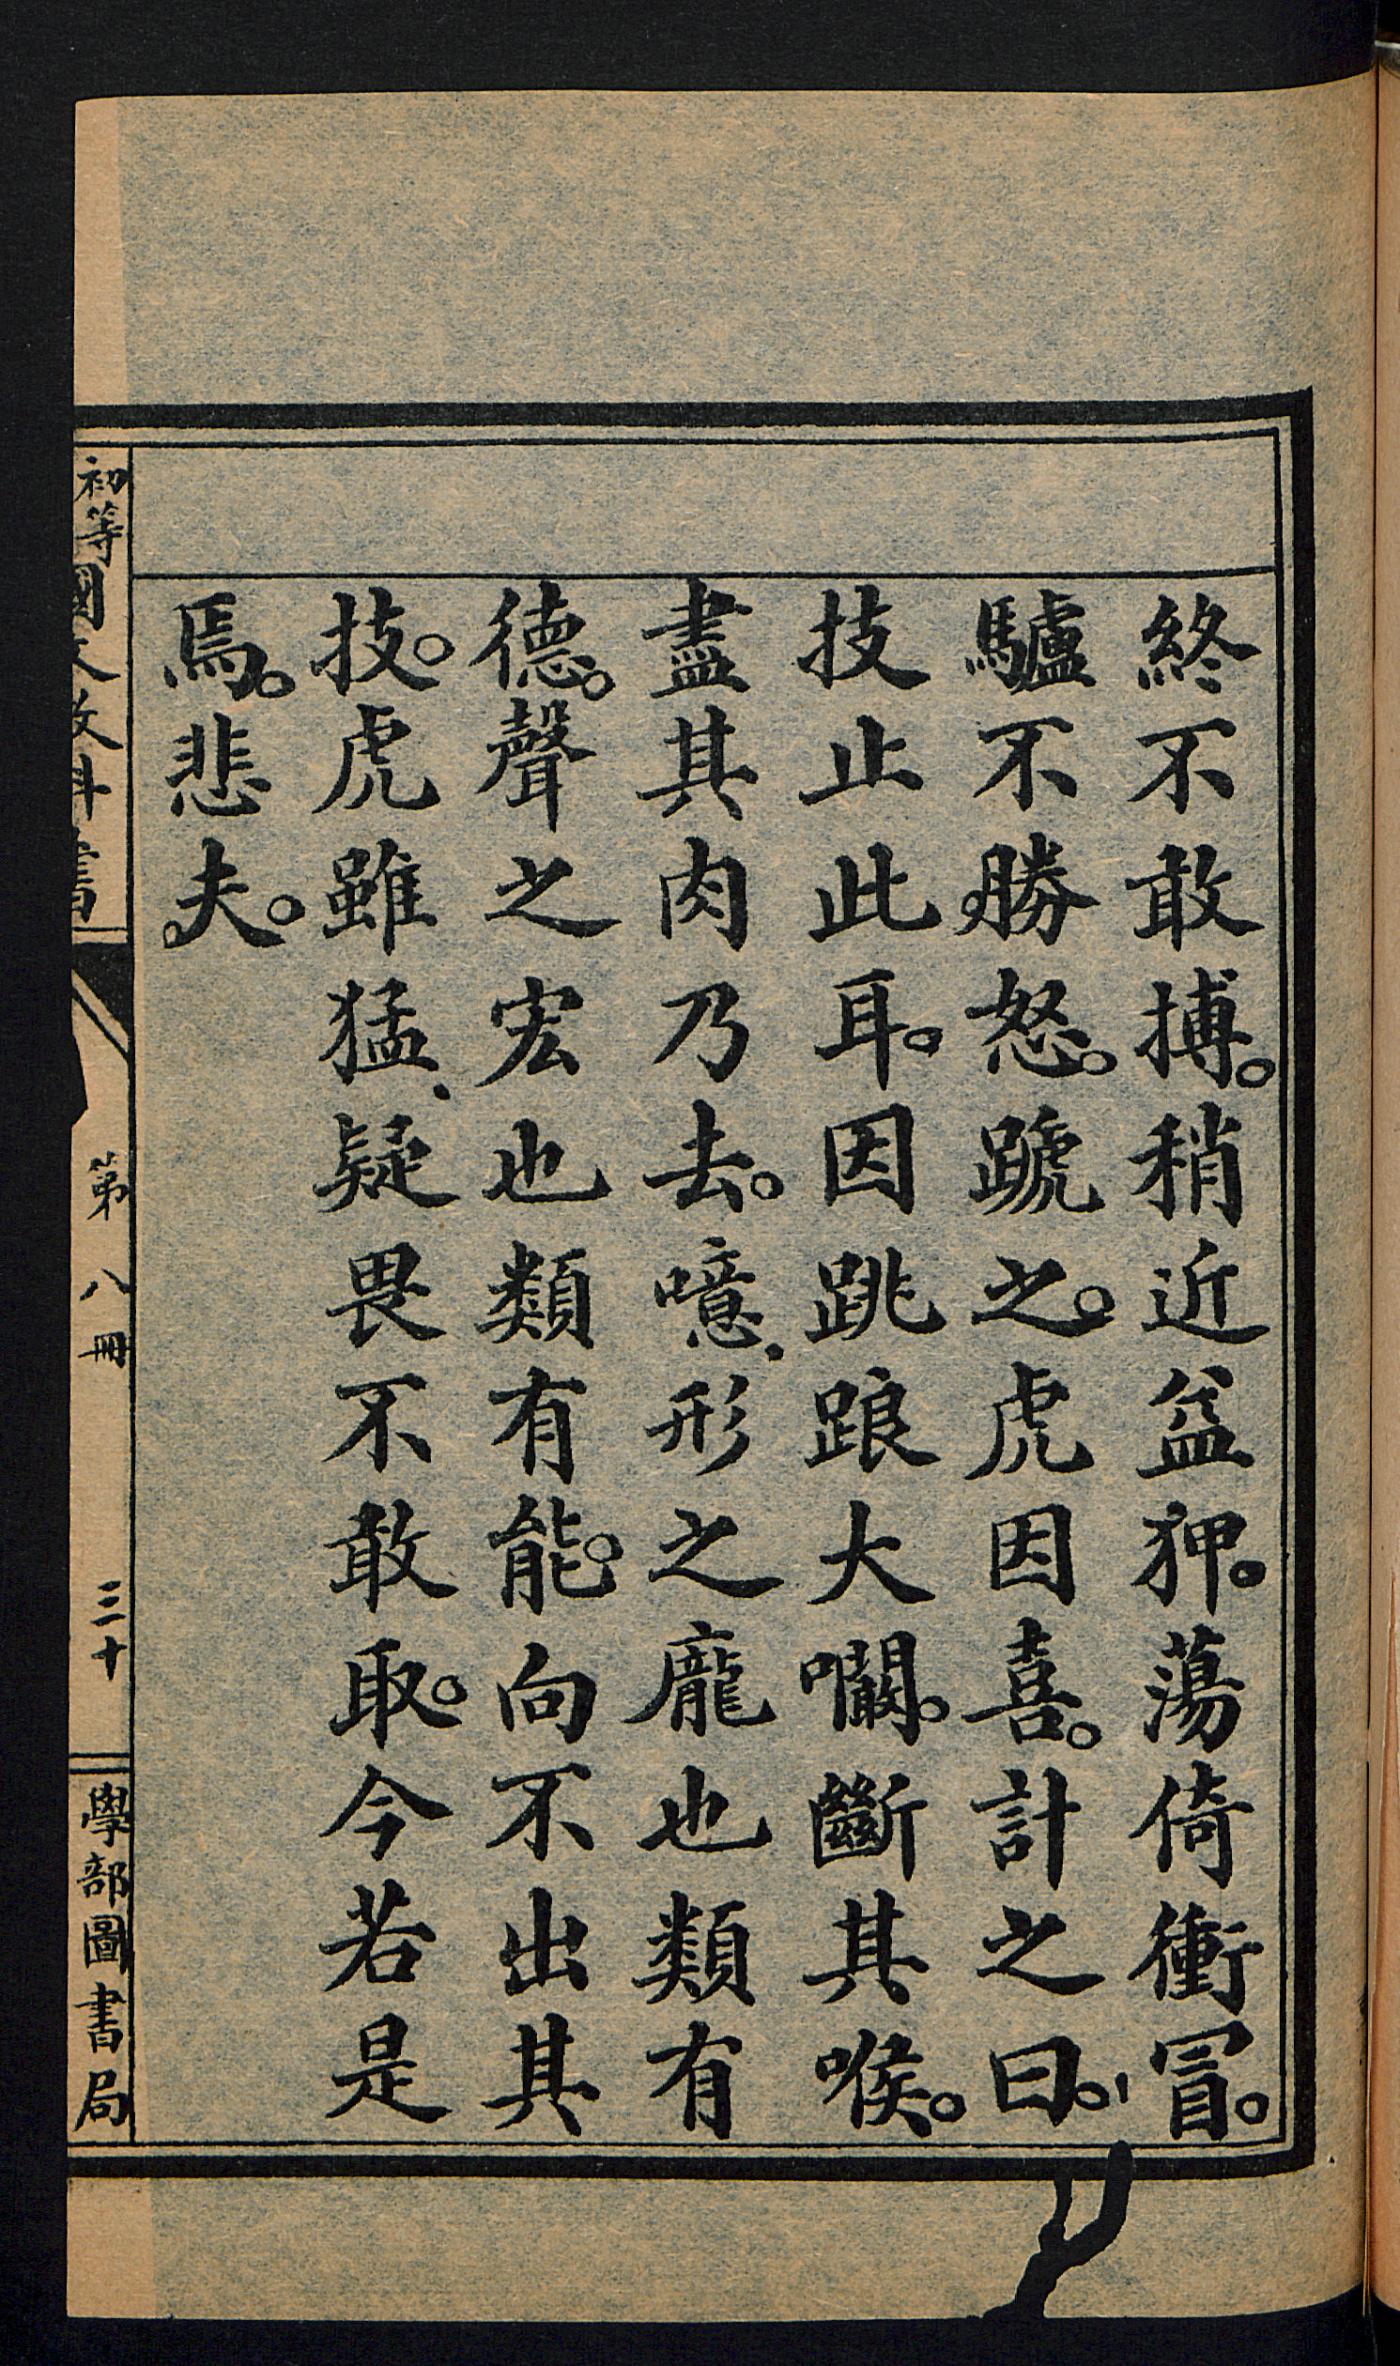 終不敢搏。稍近益狎。蕩倚衝冒。
驢不勝怒。蹏之。虎因喜。計之曰。
技止此耳。因跳踉大㘚。斷其喉。
盡其肉乃去。噫、形之龐也類有
德。聲之宏也類有能。向不出其
技。虎雖猛、疑畏不敢取。今若是
焉。悲夫。
初等國文教科書
第八冊
三十
學部圖書局